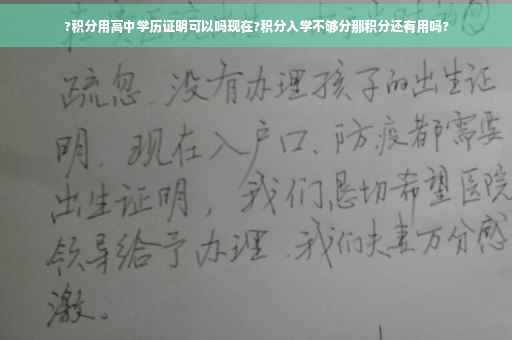 ?积分用高中学历证明可以吗现在?积分入学不够分那积分还有用吗?
疏忽、没有办理孩子的出生证
明、现在入户口、防疫都需要
出生证明，我们恳切希望医院
领导给予办理、我们夫妻万分感
激。